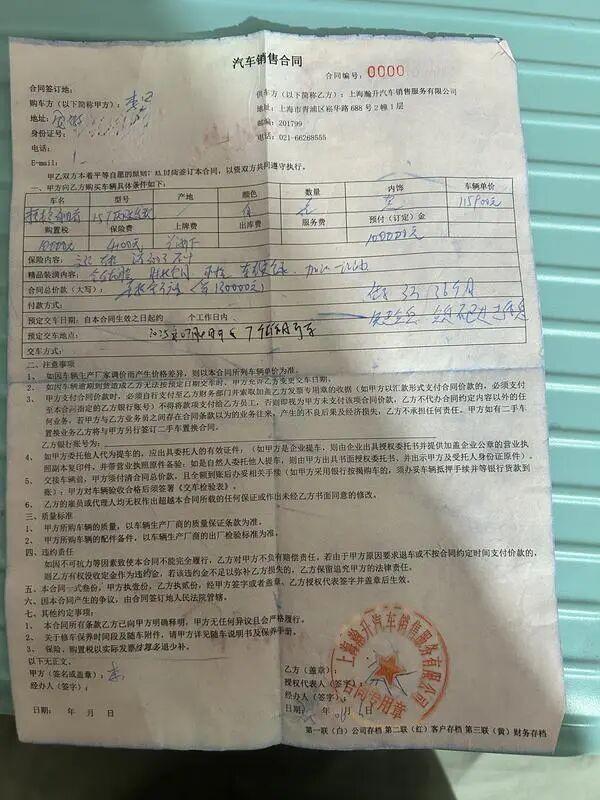 汽车销售合同
合同编号：0000
合同签订地：
供车方（以下简称乙方）：上海瀚升汽车销售服务有限公司
购车方（以下简称甲方）：李
地址：上海市青浦区崧华路688号2幢1层
地址：安徽
邮编：201799
身份证号：
电话：021-66268555
电话：
E-mail：
甲乙双方本着平等自愿的原则，签订本合同，以资双方共同遵守执行。
一、甲方向乙方购买车辆具体条件如下：
车名 型号 产地 颜色 数量 内饰 车辆单价
白 115900元
购置税 保险费 上牌费 出库费 服务费 预付（订定）金
10000元 4100元 10000元
保险内容：
精品装潢内容：
合同总价款（大写）： 130000元
36个月
付款方式：
预定交车日期：自本合同生效之日起的 个工作日内、
预定交车地点： 2025年07月
交车方式：
二、注意事项
1、如因车辆生产厂家调价而产生价格差异，则以本合同所列车辆单价为准。
2、如因车辆逾期到货造成乙方无法按预定日期交车时，甲方允许乙方变更交车日期。
3、甲方支付合同价款时，必须自行支付至乙方财务部门并索取加盖乙方发票专用章的收据（如甲方以汇款形式支付合同价款的，必须支付
至本合同指定的乙方银行账号）不得将款项支付给乙方员工，否则即视为甲方未支付该项合同价款，乙方不代办合同约定内容以外的任
何业务，若甲方与乙方业务员之间存在合同条款以为的业务往来，产生的不良后果及经济损失，乙方不承担任何责任。甲方如有二手车
置换业务乙方将与甲方另行签订二手车置换合同。
乙方银行账号为：
4、如甲方委托他人代为提车的，应出具委托人的有效证件；（如甲方是企业提车，则由企业出具授权委托书并提供加盖企业公章的营业执
照副本复印件，并带营业执照原件备验；如是自然人委托他人提车，则由甲方出具书面授权委托书，并出示甲方及受托人身份证原件）。
5、交接车辆前，甲方须付清合同总价款，且全额到账后办妥相关手续（如甲方采用银行按揭购车的，须办妥车辆抵押手续并等银行货款到
账；）；甲方对车辆验收合格后须签署《交车检验表》。
6、乙方的雇员或代理人均无权作出超越本合同所载的任何保证或作出未经乙方书面同意的修改。
三、质量标准
1、甲方所购车辆的质量，以车辆生产厂商的质量保证条款为准。
2、甲方所购车辆的配件准备，以车辆生产厂商的出厂检验标准为准。
四、违约责任
如因不可抗力等因素致使本合同不能完全履行，乙方对甲方不负有赔偿责任。若由于甲方原因要求退车或不按合同约定时间支付价款的，
则乙方有权没收定金作为违约金，若该违约金不足以弥补乙方损失的，乙方保留追究甲方的法律责任。
五、本合同一式叁份，甲方执壹份，乙方执贰份，经甲方签字或者盖章、乙方授权代表签字并盖章后生效。
六、因本合同产生的争议，由合同签订地人民法院管辖。
七、其他约定事项：
1、本合同所有条款乙方已向甲方明确释明，甲方无任何异议且会严格履行。
2、关于修车保养时间段及随车附件，请甲方详见随车说明书及保养手册。
3、保险、购置税以实际发票结算多退少补。
以下无正文。
甲方（签名或盖章）：李
乙方（盖章）：
经办人（签字）：
授权代表人（签字）：
经办人（签字）：
日期： 年 月 日
年 月 日
上海瀚升汽车销售服务有限公司
合同专用章
第一联（白）公司存档 第二联（红）客户存档 第三联（黄）财务存档